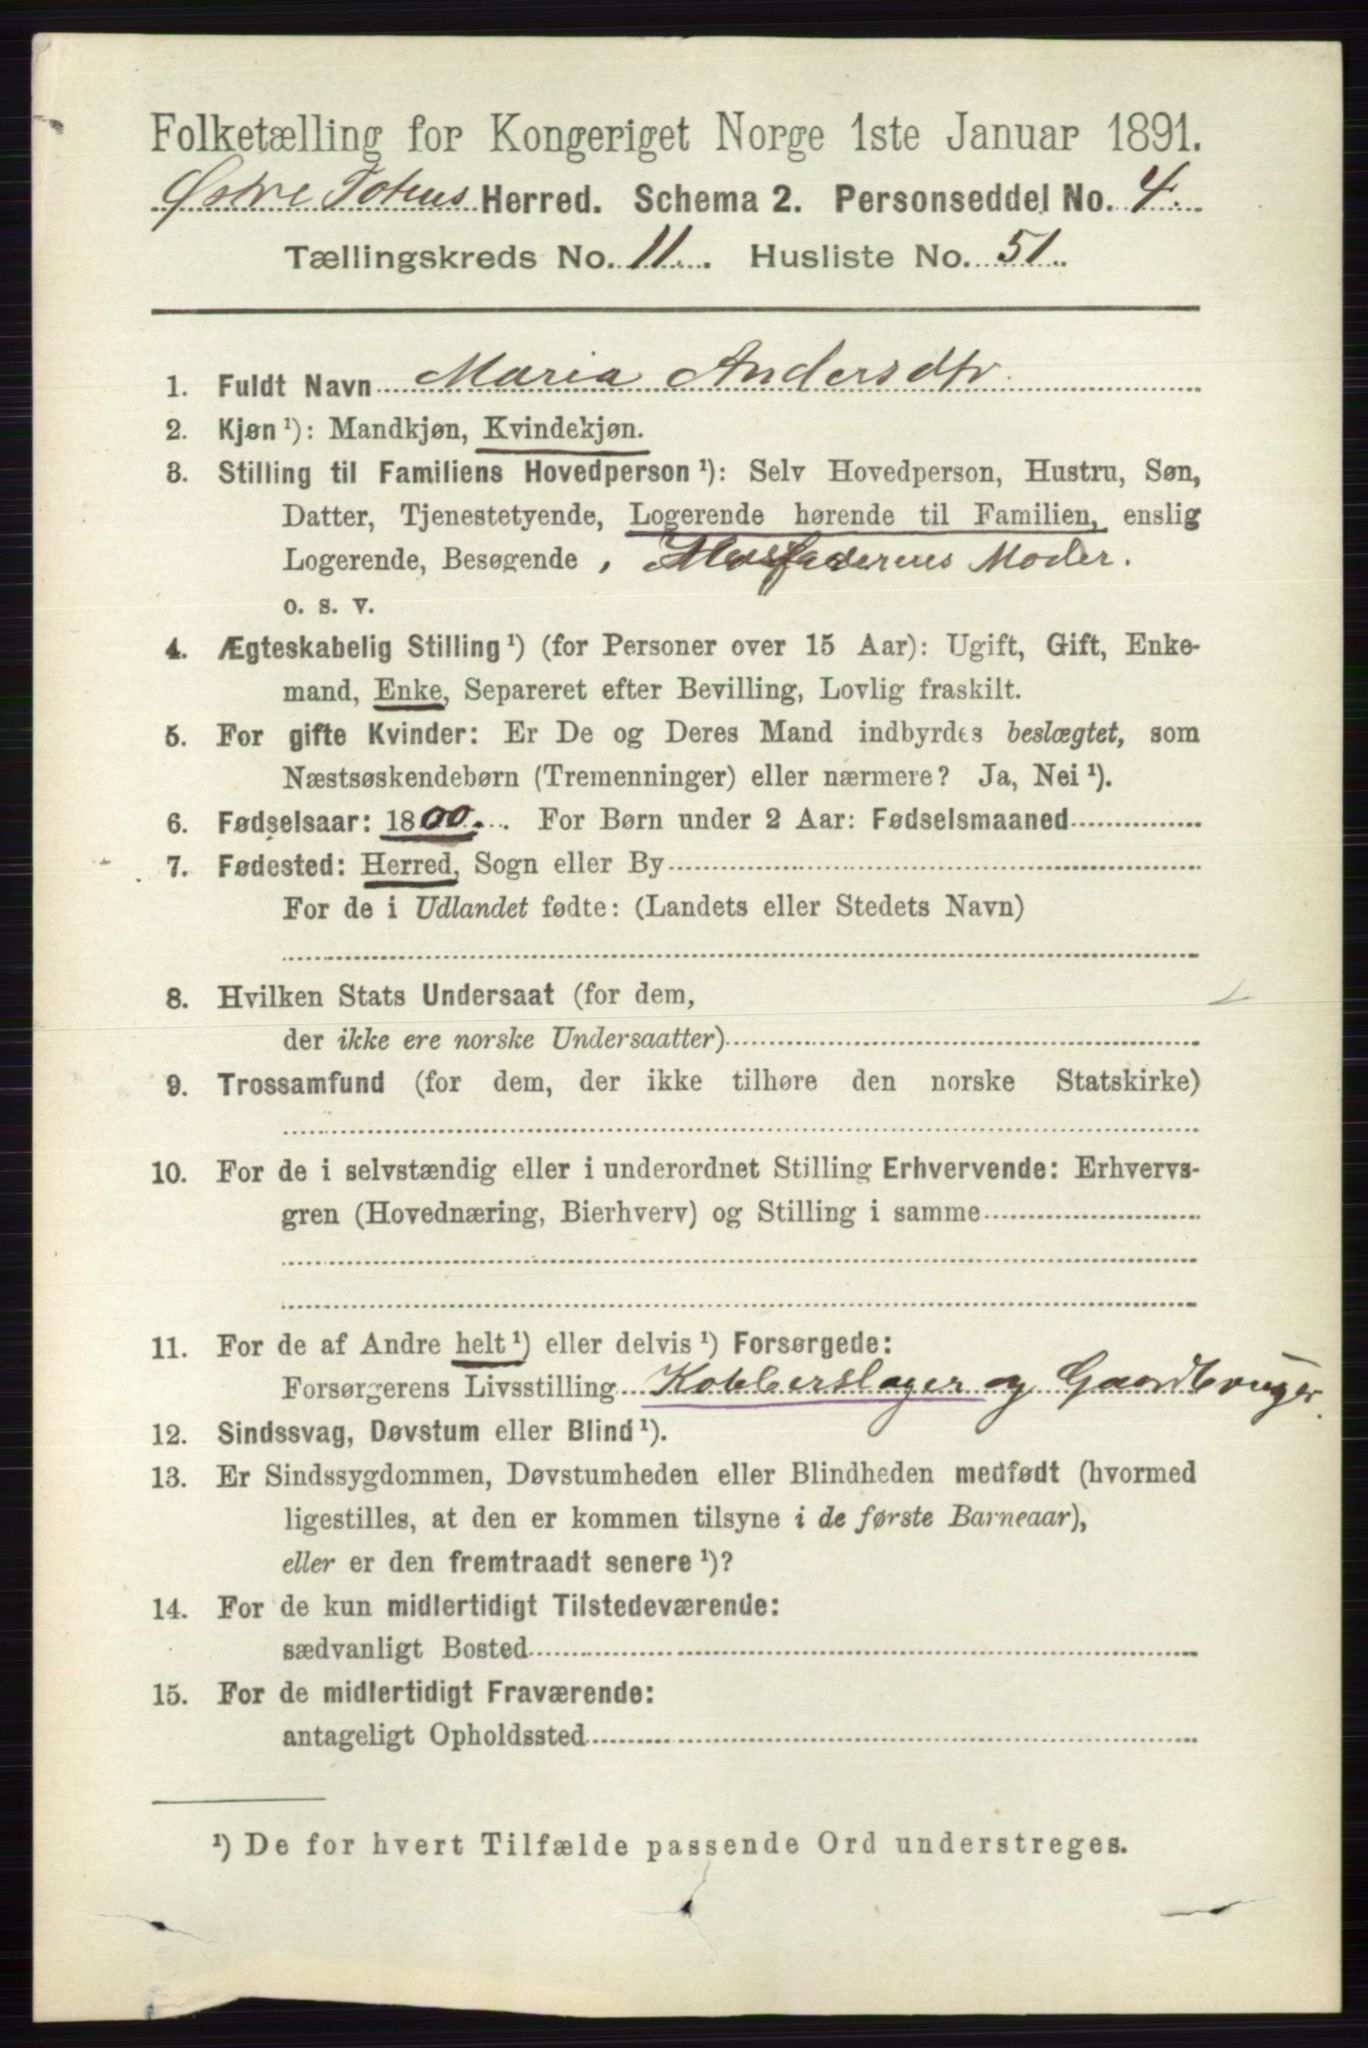 Folketælling for Kongeriget Norge 1ste Januar 1891.
Østre Totens Herred. Schema 2. Personseddel No. 4.
Tællingskreds No. 11. Husliste No. 51.
1. Fuldt Navn Maria Andersdtr.
2. Kjøn ¹): Mandkjøn, Kvindekjøn.
3. Stilling til Familiens Hovedperson ¹): Selv Hovedperson, Hustru, Søn,
Datter, Tjenestetyende, Logerende hørende til Familien, enslig
Logerende, Besøgende , Husfaderens Moder.
o. s. v.
4. Ægteskabelig Stilling ¹) (for Personer over 15 Aar): Ugift, Gift, Enke-
mand, Enke, Separeret efter Bevilling, Lovlig fraskilt.
5. For gifte Kvinder: Er De og Deres Mand indbyrdes beslægtet, som
Næstsøskendebørn (Tremenninger) eller nærmere? Ja, Nei ¹).
6. Fødselsaar: 1800. For Børn under 2 Aar: Fødselsmaaned
7. Fødested: Herred, Sogn eller By
For de i Udlandet fødte: (Landets eller Stedets Navn)
8. Hvilken Stats Undersaat (for dem,
der ikke ere norske Undersaatter)
9. Trossamfund (for dem, der ikke tilhøre den norske Statskirke)
10. For de i selvstændig eller i underordnet Stilling Erhvervende: Erhvervs-
gren (Hovednæring, Bierhverv) og Stilling i samme
11. For de af Andre helt ¹) eller delvis ¹) Forsørgede:
Forsørgerens Livsstilling Kobberslager og Gaardbruger.
12. Sindssvag, Døvstum eller Blind ¹).
13. Er Sindssygdommen, Døvstumheden eller Blindheden medfødt (hvormed
ligestilles, at den er kommen tilsyne i de første Barneaar),
eller er den fremtraadt senere ¹)?
14. For de kun midlertidigt Tilstedeværende:
sædvanligt Bosted
15. For de midlertidigt Fraværende:
antageligt Opholdssted
¹) De for hvert Tilfælde passende Ord understreges.